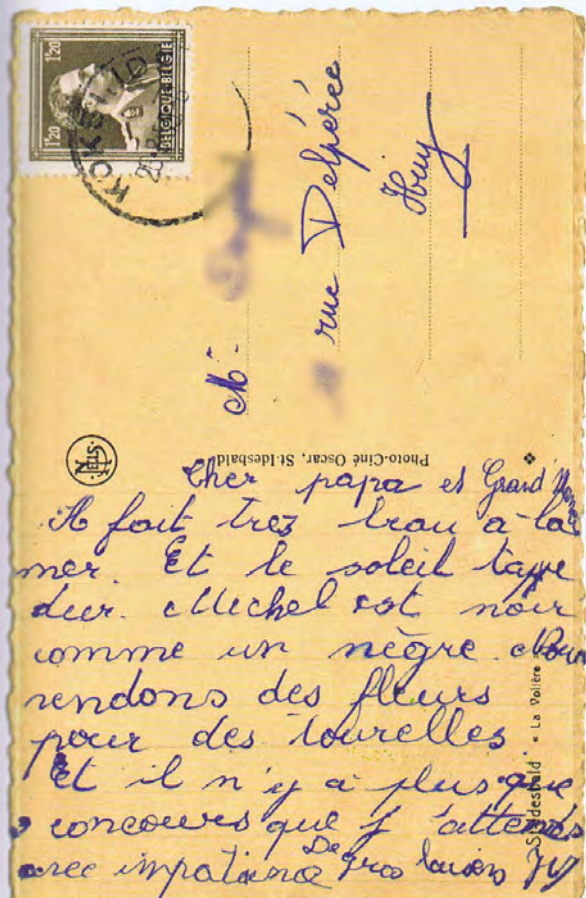 1.20 1.20
BELGIQUE-BELGIE
M.
rue Delpérée
Huy
NELS
Photo-Ciné Oscar, St-Idesbald
St-Idesbald « La Volière »
Cher papa et Grand
Il fait trez beau a la
mer. Et le soleil tappe
dur. Michel est noir
comme un nègre. Nous
vendons des fleurs
pour des tourelles.
Et il n'y a plus que
concours que j'attends
avec impatience De gros baisers